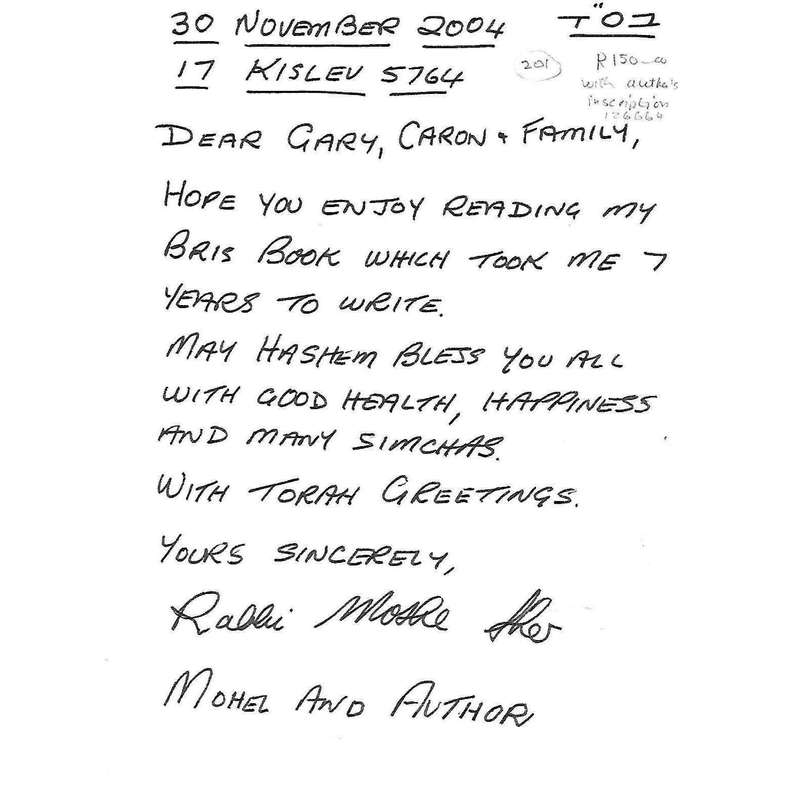 30 NOVEMBER 2004 בס"ד
17 KISLEV 5764
201
R150-00
with author's
inscription
126664
DEAR GARY, CARON + FAMILY,
HOPE YOU ENJOY READING MY
BRIS BOOK WHICH TOOK ME 7
YEARS TO WRITE.
MAY HASHEM BLESS YOU ALL
WITH GOOD HEALTH, HAPPINESS
AND MANY SIMCHAS.
WITH TORAH GREETINGS.
YOURS SINCERELY,
Rabbi Moshe
MOHEL AND AUTHOR